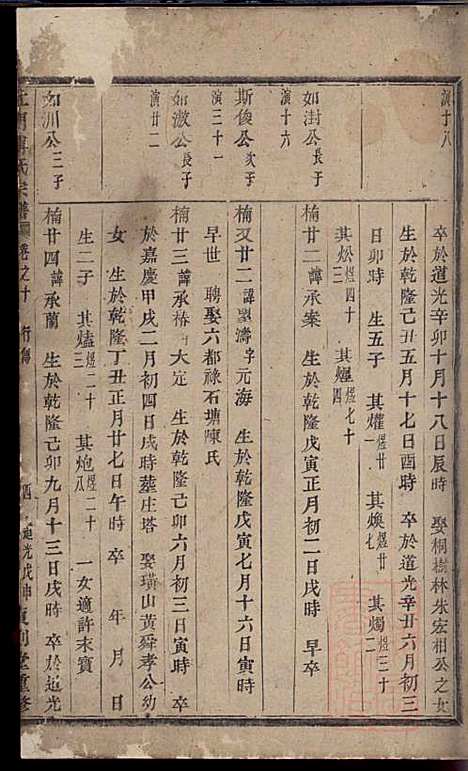 演十八
卒於道光辛卯十月十八日辰時 娶桐樹林朱宏相公之女
生於乾隆己丑五月十七日酉時 卒於道光辛丑六月初三
日卯時 生五子 其爟煜廿一 其煥煜廿七 其燭煜三十二
其炂煜四十三 其燿煜七十四
如澍公長子
演十六
楠廿二諱承案 生於乾隆戊寅正月初二日戌時 早卒
斯俊公次子
演三十一
楠又廿二諱 濤字元海 生於乾隆戊寅七月十六日寅時
早世 聘娶六都祿石塘陳氏
如澂公長子
演廿二
楠廿三諱承椿 大定 生於乾隆己卯六月初三日寅時 卒
於嘉慶甲戌二月初四日戌時葬庄塔 娶璜山黃舜孝公幼
女 生於乾隆丁丑正月廿七日午時 卒 年 月 日
生二子 其爐煜二十三 其炮煜二十八 一女適許末寶
如川公三子
楠廿四諱承蘭 生於乾隆己卯九月十三日戌時 卒於道光
氏宗譜 卷之十 行傳 道光戊申重修